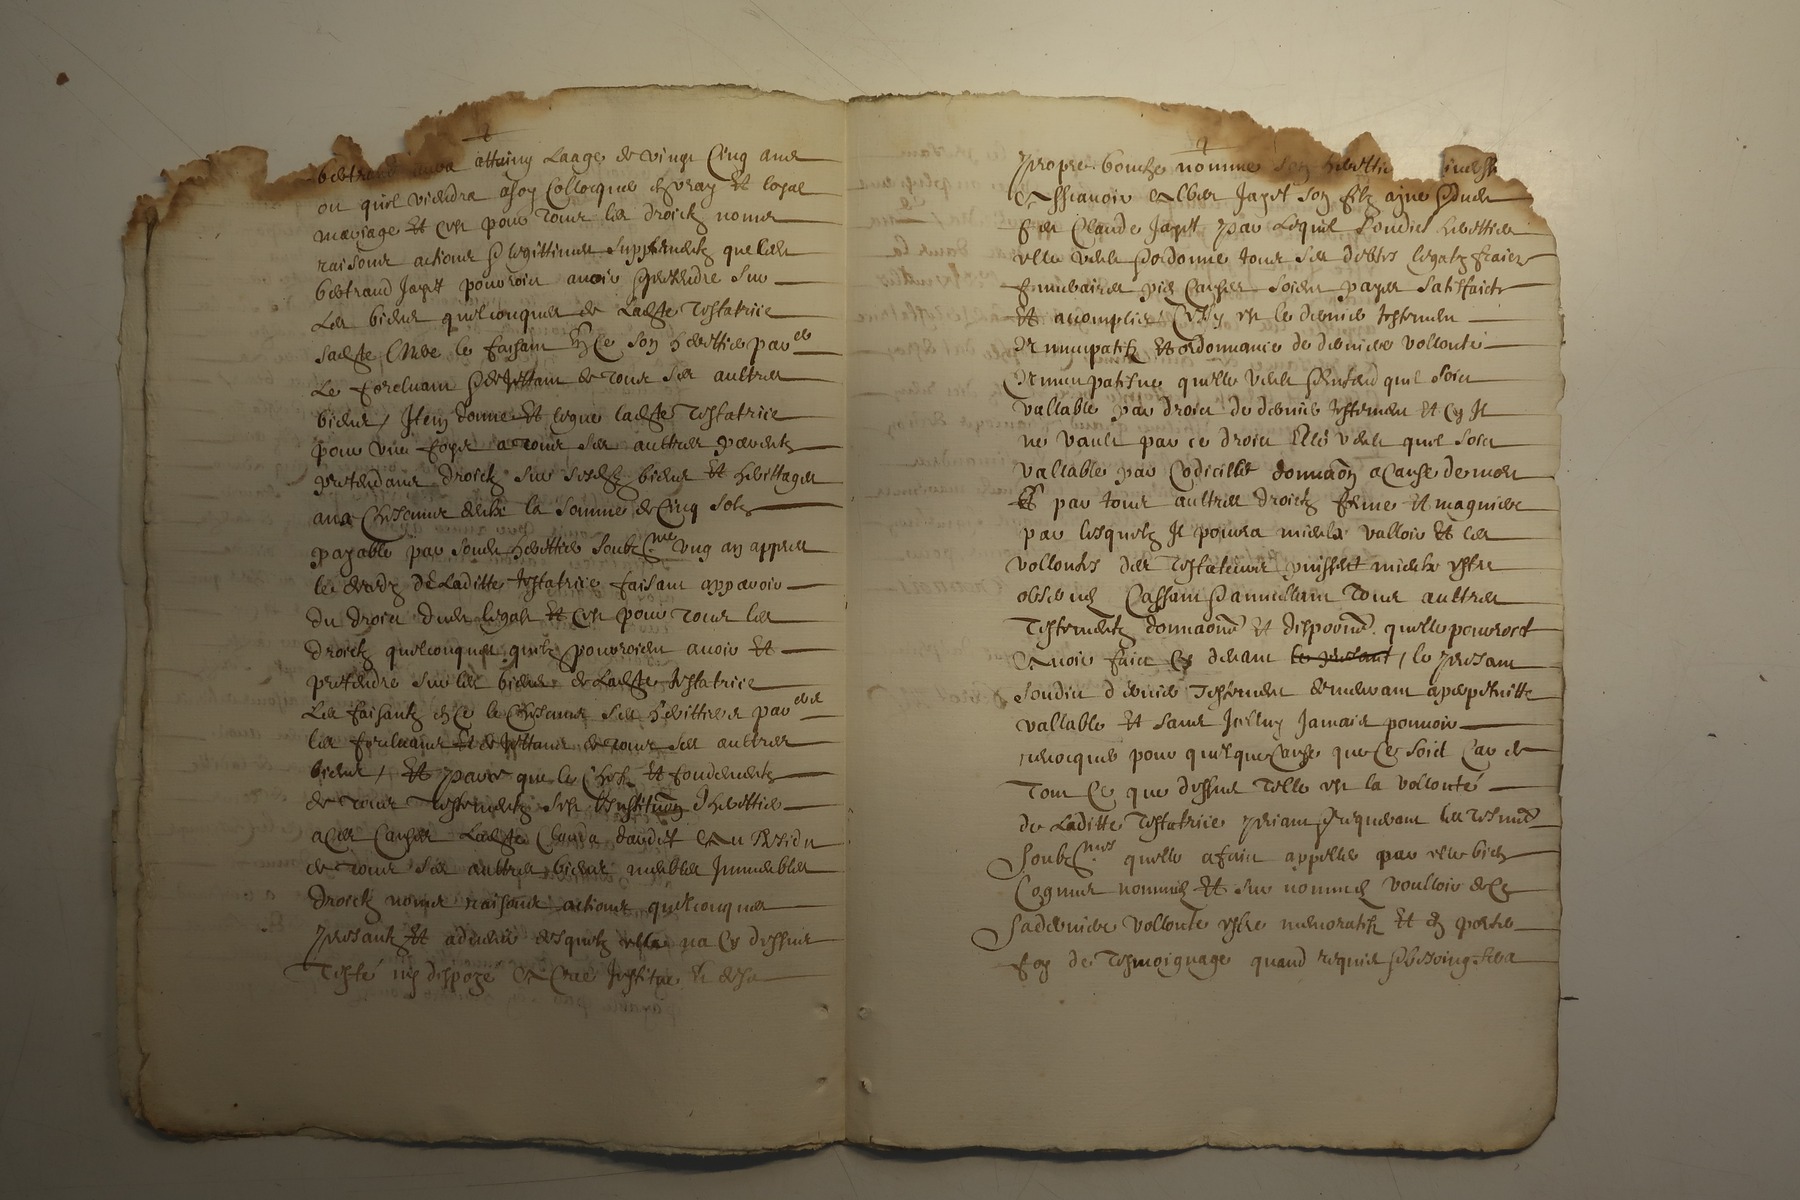 bertrand aura attaing Laage de vingt Cinq ans
ou quil viendra a soy Collocquer en vray Et loyal
mariage Et c'est pour tous les droictz noms
raisons actions & legittimes supplementz que ledict
bertrand Jayet pourroict avoir & pretendre Sur
Les biens quelconques de Ladicte testatrice
sadicte mere le faisant en ce son heritier par[er]
Le forcluant & dejettant de tous ses aultres
biens / Item donne Et legue ladicte Testatrice
pour une foys a tous ses aultres parentz
pretendans droictz sur sesdictz biens Et heritages
a un Chescun deulx la somme de Cinq solz
payable par sondict heritier soubz.né ung an appres
le decedz de Laditte testatrice faisant apparoir
du droict dudict legat Et c'est pour tous les
droictz quelconques quilz pourroient avoir Et
pretendre sur les biens de Ladicte testatrice
Les faisantz en ce le Chescun ses heritiers par[ers]
les forcluans Et dejettans de tous ses aultres
biens / Et parce que le Chefz Et fondementz
de tous testementz est l'institution d'heritier
a ces Causes Ladicte Clauda daudet Au Residu
de tous ses aultres biens meubles Immeubles
droictz noms raisons actions quelconques
presantz Et advenir desquelz elle na Cy dessus
Testé ny dispozé A Cree Institue Et de sa
propre bouche nomme son heritie
Assavoir Alber Jayet son filz ayne & dudict
feu Claude Jayet par Lequel sondict heritier
elle veult & ordonne tous ses debtes legatz fraiez
funerairez pies Causes soient payes satisfaictz
Et acomplis Cessy est le dernier testement
Nuncupatif Et ordonnance de derniere vollonté
Nuncupatifve quelle veult & entend quil soict
vallable par droict de dernier testement Et Cy Il
ne vault par ce droict Elle veult quil soict
vallable par Codicille donnaon a Cause de mort
Et par tous aultres droictz forme Et magniere
par lesquelz Il pourra mieulx valloir Et les
vollontes des testateurs puissent mieulx estre
observes Cassant & annullant tous aultres
Testementz donnaons Et dispoons quelle pourroit
Avoir faict Cy devant le presant / le presant
sondict dernier testement demeurant a perpetuitte
vallable Et sans Icelluy Jamais pouvoir
revocquer pour quelque Cause que Ce soict Car de
Tout Ce que dessus telle est la vollonté
de Laditte testatrice priant & requerant les tesmoings
soubz.nés quelle a faict appelle par elle bien
Cognus nommes Et sur nommes voulloir de Ce
sa derniere vollonte estre memoratifz Et en porter
foy de tesmoignage quand requis & besoing sera